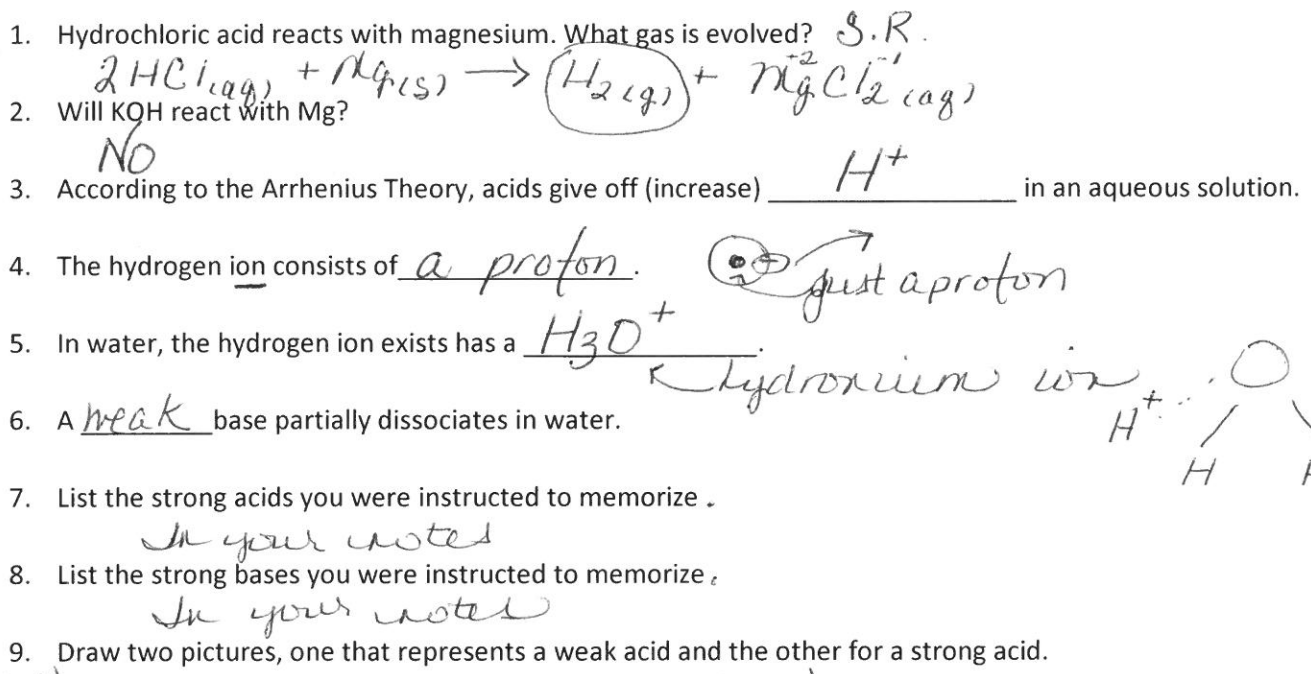 1. Hydrochloric acid reacts with magnesium. What gas is evolved? S.R.
2HCl(aq) + Mg(s) → H2(g) + Mg+2Cl2-1(aq)
2. Will KOH react with Mg?
NO
3. According to the Arrhenius Theory, acids give off (increase) H+ in an aqueous solution.
4. The hydrogen ion consists of a proton. just a proton
5. In water, the hydrogen ion exists has a H3O+.
hydronium ion
6. A weak base partially dissociates in water.
H+ O
H H
7. List the strong acids you were instructed to memorize.
In your notes
8. List the strong bases you were instructed to memorize.
In your notes
9. Draw two pictures, one that represents a weak acid and the other for a strong acid.